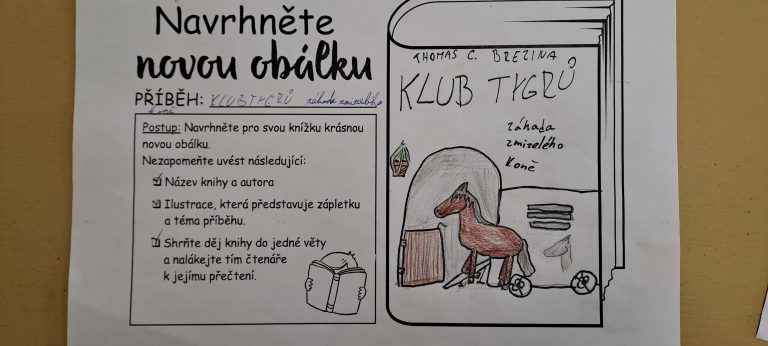 Navrhněte
novou obálku
PŘÍBĚH: KLUB TYGRŮ záhada zmizelého
koně
Postup: Navrhněte pro svou knížku krásnou
novou obálku.
Nezapomeňte uvést následující:
Název knihy a autora
Ilustrace, která představuje zápletku
a téma příběhu.
Shrňte děj knihy do jedné věty
a nalákejte tím čtenáře
k jejímu přečtení.
THOMAS C. BREZINA
KLUB TYGRŮ
záhada
zmizelého
koně